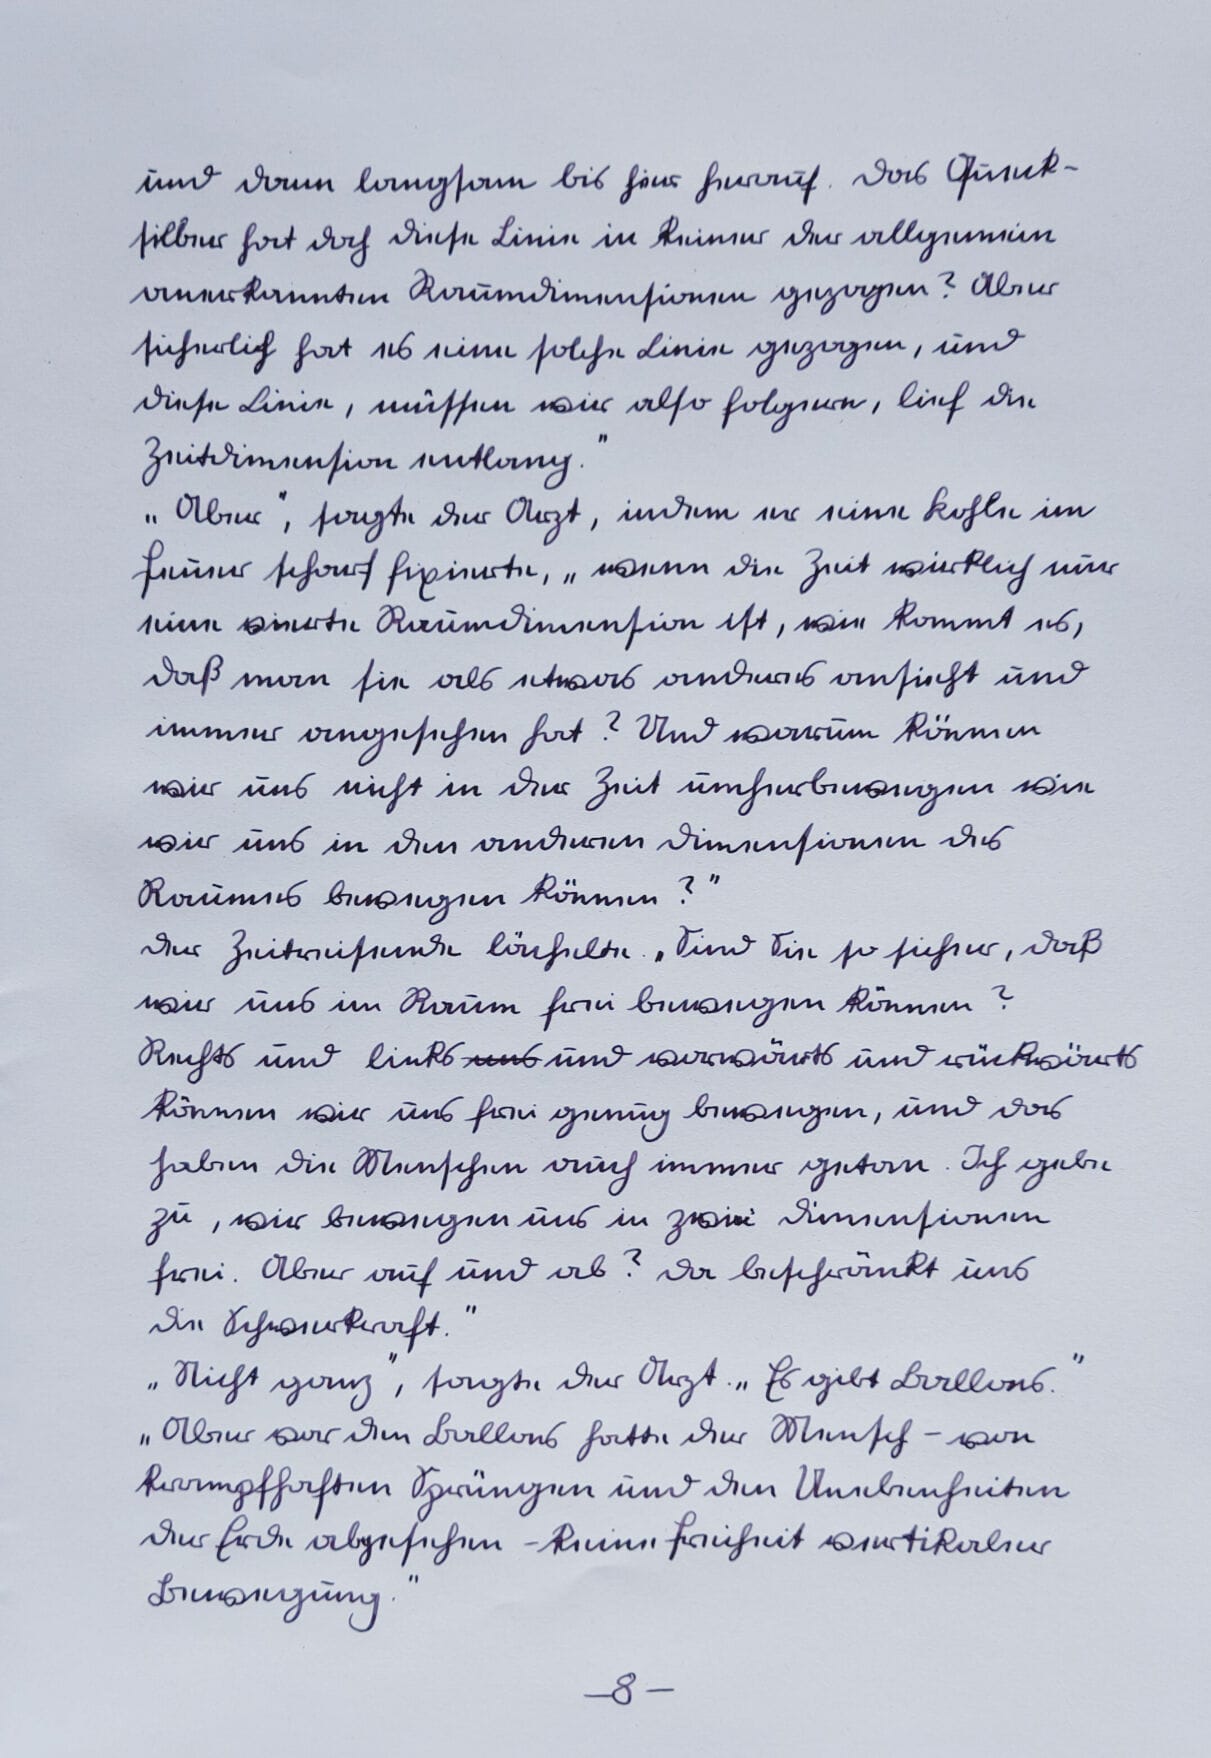 und dann langsam bis hier herauf. Das Queck-
silber hat doch diese Linie in keiner der allgemein
anerkannten Raumdimensionen gezogen? Aber
sicherlich hat es eine solche Linie gezogen, und
diese Linie, müssen wir also folgern, lief die
Zeitdimension entlang."
„Aber", sagte der Arzt, indem er eine Kohle im
Feuer scharf fixierte, „wenn die Zeit wirklich nur
eine vierte Raumdimension ist, wie kommt es,
daß man sie als etwas anderes ansieht und
immer angesehen hat? Und warum können
wir uns nicht in der Zeit umherbewegen wie
wir uns in den anderen Dimensionen des
Raumes bewegen können?"
Der Zeitreisende lächelte. „Sind Sie so sicher, daß
wir uns im Raum frei bewegen können?
Rechts und links uns und vorwärts und rückwärts
können wir uns frei genug bewegen, und das
haben die Menschen auch immer getan. Ich gebe
zu, wir bewegen uns in zwei Dimensionen
frei. Aber auf und ab? Da beschränkt uns
die Schwerkraft."
„Nicht ganz", sagte der Arzt. „Es gibt Ballons."
„Aber vor den Ballons hatte der Mensch – von
krampfhaften Sprüngen und den Unebenheiten
der Erde abgesehen – keine Freiheit vertikaler
Bewegung."
–8–